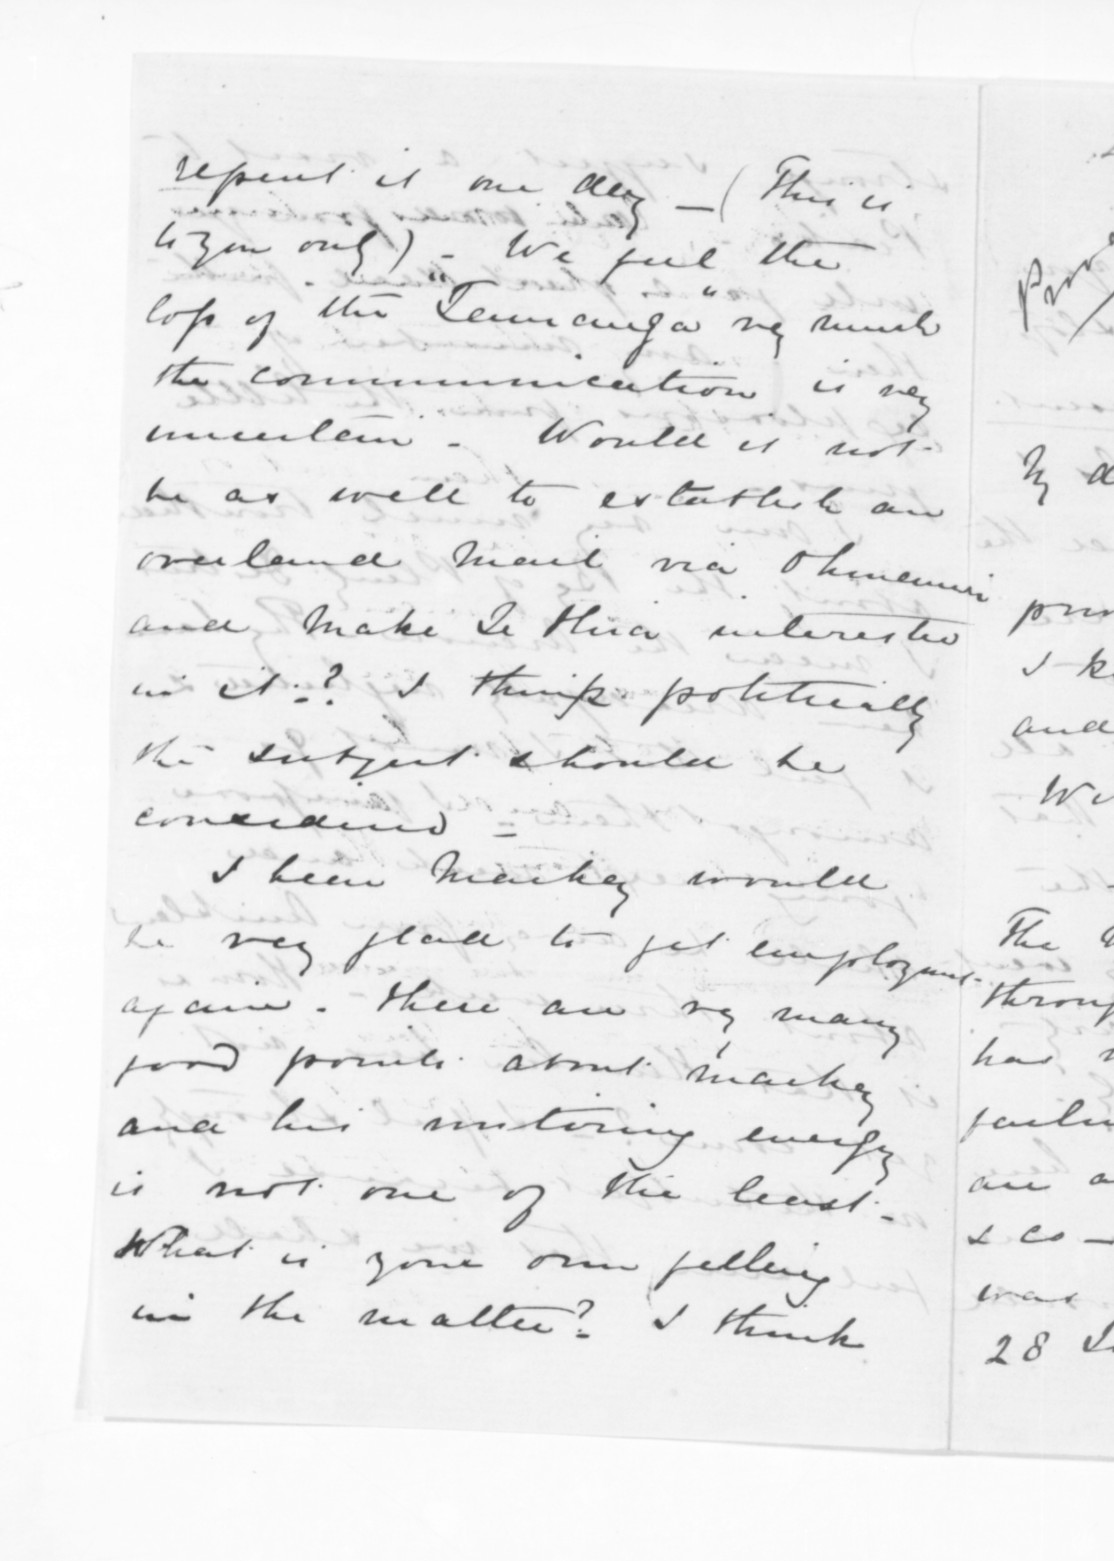 repent it one day – (This is
to you only) – We feel the
loss of the "Tauranga" vy much
the communication is very
uncertain – Would it not
be as well to establish an
overland mail via Ohinemuri
and make Te Hira interested
in it? I think politically
the subject should be
considered –
I hear Mackay would
be very glad to get employment
again – there are vy many
good points about Mackay
and his untiring energy
is not one of the least –
What is your own feeling
in the matter? I think
My d
I k
and
The
throug
has
are a
& co –
was
28